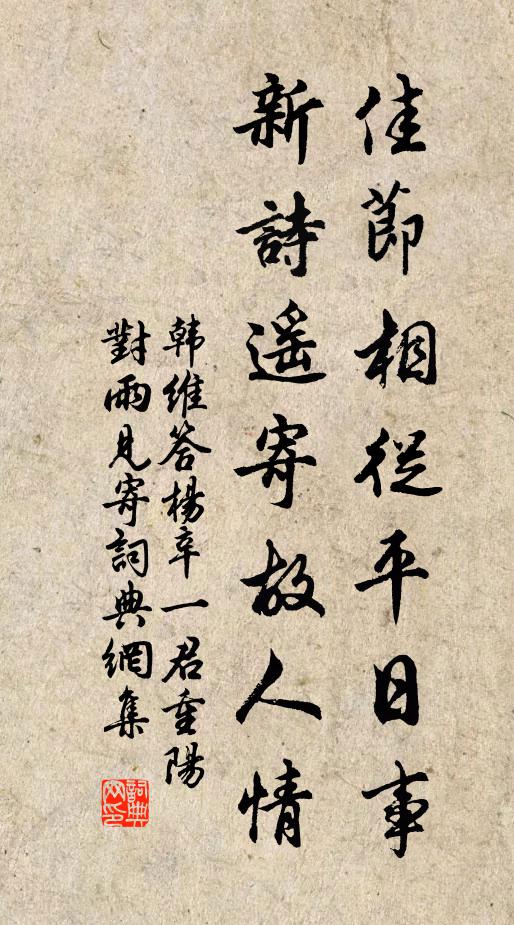 佳節相從平日事
新詩遥寄故人情
韩維答楊卒一君重陽
對雨見寄詞典網集
詞典网印